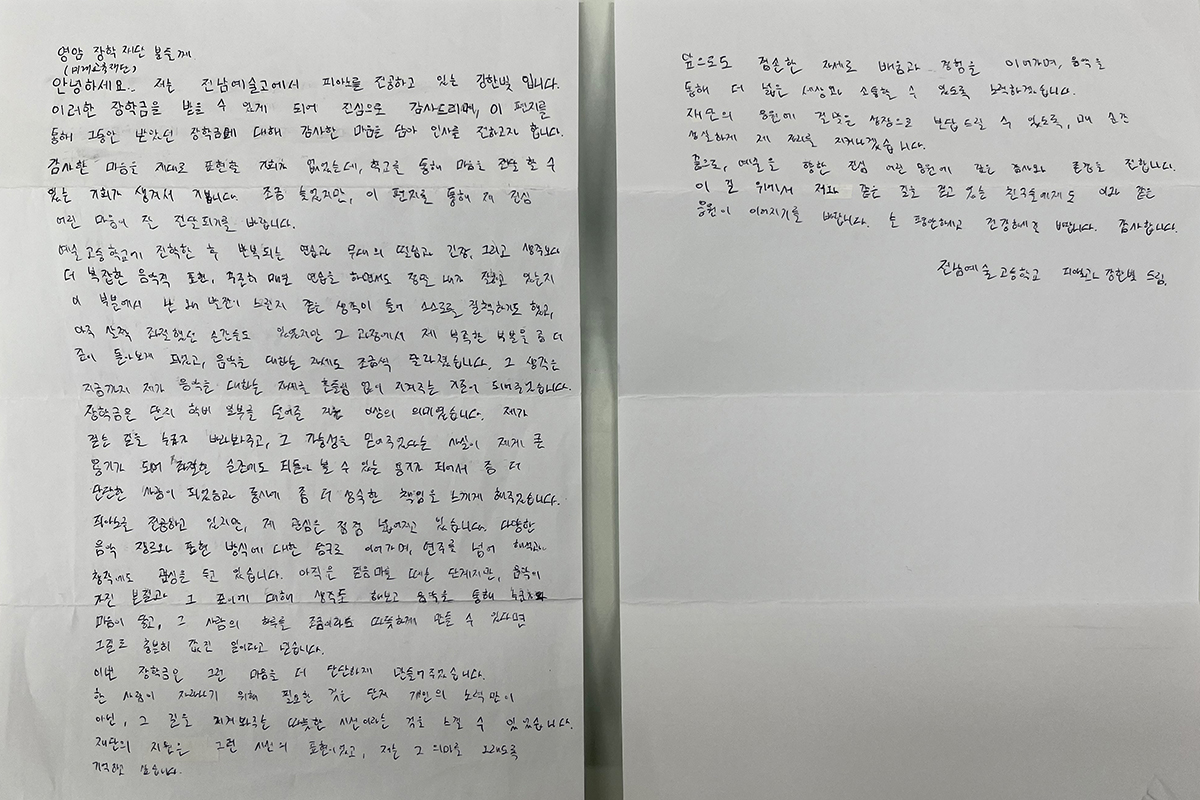 영암 장학 재단 분들께
(미래교육재단)
안녕하세요. 저는 전남예술고에서 피아노를 전공하고 있는 강한빛 입니다.
이러한 장학금을 받을 수 있게 되어 진심으로 감사드리며, 이 편지를
통해 그동안 받았던 장학금에 대해 감사한 마음을 담아 인사를 전하고자 합니다.
감사한 마음을 제대로 표현할 기회가 없었는데, 학교를 통해 마음을 전달 할 수
있는 기회가 생겨서 기쁩니다. 조금 늦었지만, 이 편지를 통해 제 진심
어린 마음이 잘 전달되기를 바랍니다.
예술 고등학교에 진학한 후 반복되는 연습과 무대의 떨림과 긴장, 그리고 생각보다
더 복잡한 음악적 표현, 꾸준히 매번 연습을 하면서도 정말 내가 잘하고 있는지
이 부분에서 난 왜 발전이 느린지 같은 생각이 들어 스스로를 질책하기도 했고,
아주 살짝 좌절했던 순간들도 있었지만 그 과정에서 제 부족한 부분을 좀 더
깊이 돌아보게 되었고, 음악을 대하는 자세도 조금씩 달라졌습니다. 그 생각은
지금까지 제가 음악을 대하는 자세를 흔들림 없이 지켜주는 되어주었습니다.
장학금은 단지 학비 부담을 덜어준 지원 이상의 의미였습니다. 제가
걷는 길을 누군가 바라봐주고, 그 가능성을 믿어주었다는 사실이 제게 큰
용기가 되어 좌절한 순간에도 되돌아 볼 수 있는 용기가 되어서 좀 더
단단한 사람이 되었음과 동시에 좀 더 성숙한 책임을 느끼게 해주었습니다.
피아노를 전공하고 있지만, 제 관심은 점점 넓어지고 있습니다. 다양한
음악 장르와 표현 방식에 대한 탐구로 이어가며, 연주를 넘어 해석과
창작에도 관심을 두고 있습니다. 아직은 걸음마를 떼는 단계지만, 음악이
가진 본질과 그 깊이에 대해 생각도 해보고 음악을 통해 누군가의
마음이 울고, 그 사람의 하루를 조금이라도 따뜻하게 만들 수 있다면
그걸로 충분히 값진 일이라고 믿습니다.
이번 장학금은 그런 마음을 더 단단하게 만들어주었습니다.
한 사람이 자라나기 위해 필요한 것은 단지 개인의 노력만이
아닌, 그 길을 지켜봐주는 따뜻한 시선이라는 것을 느낄 수 있었습니다.
재단의 지원은 그런 시선의 표현이었고, 저는 그 의미를 오래도록
기억하고 싶습니다.
앞으로도 겸손한 자세로 배움과 경험을 이어가며, 음악을
통해 더 넓은 세상과 소통할 수 있도록 노력하겠습니다.
재단의 응원에 걸맞은 성장으로 보답드릴 수 있도록, 매 순간
성실하게 제 자리를 지켜나가겠습니다.
끝으로, 예술을 향한 진심 어린 응원에 깊은 감사와 존경을 전합니다.
이 길 위에서 저와 같은 길을 걷고 있는 친구들에게도 이와 같은
응원이 이어지기를 바랍니다. 늘 평안하고 건강하시길 바랍니다. 감사합니다.
전남예술고등학교 피아노과 강한빛 드림.